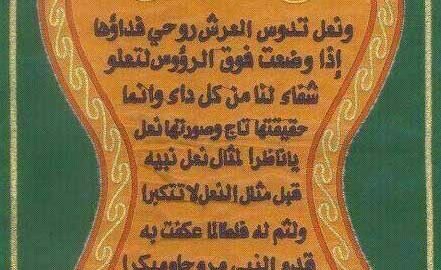 ونعل تدوس العرش روحي فداؤها
إذا وضعت فوق الرؤوس لتعلو
شفاء لنا من كل داء وانما
حقيقتها تاج وصورتها نعل
ياناظرا لمثال نعل نبيه
قبل مثال النعل لا تتكبرا
ولثم له فلطالما عكفت به
قدم النبي مروحا ومبكرا